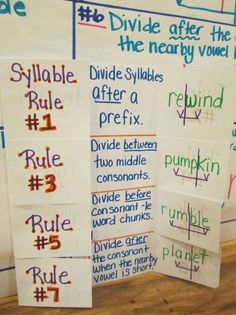 #6 Divide after the
the nearby vowel
Syllable
Rule
#1
Divide Syllables
after a
prefix.
rewind
Rule
#3
Divide between
two middle
consonants.
pumpkin
Rule
#5
Divide before
consonant -le
word chunks.
rumble
Rule
#7
Divide after
the consonant
when the nearby
vowel is short.
planet